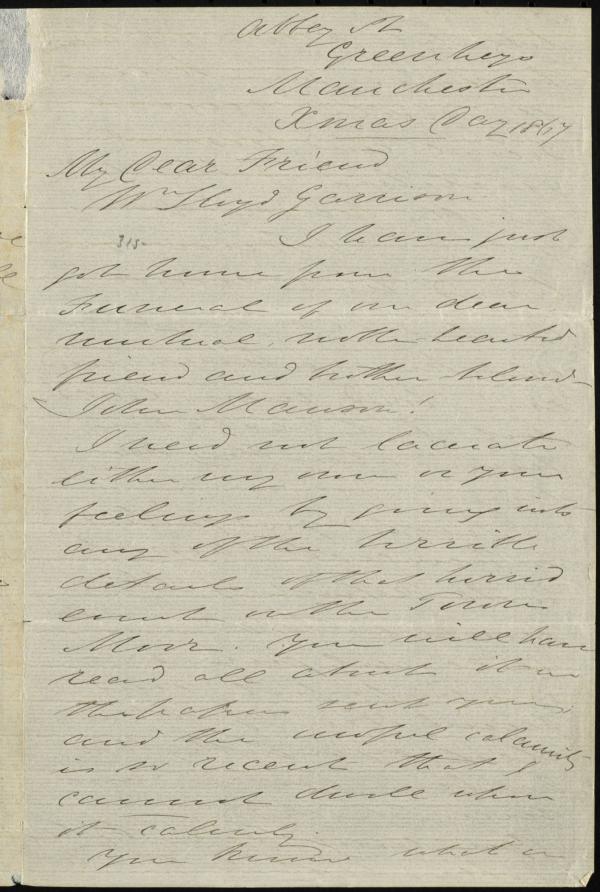 Abbey St
Greenheys
Manchester
Xmas Day 1867
My Dear Friend
Wm Lloyd Garrison
315-
I have just
got home from the
Funeral of our dear
mutual, noble hearted
friend and brother beloved
John Mawson!
I need not lacerate
either my own or your
feelings by going into
any of the terrible
details of that horrid
event on the Town
Moor. You will have
read all about it in
the papers sent you,
and the awful calamity
is so recent that I
cannot dwell upon
it calmly.
You know what a